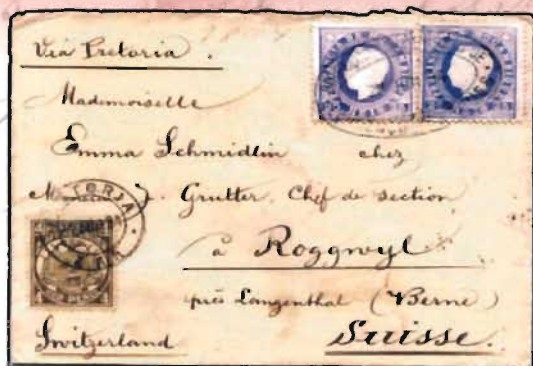 Via Pretoria.
Mademoiselle
Emma Schmidlin chez
Grütter, Chef de section
à Roggwyl
près Langenthal (Berne)
Switzerland Suisse.